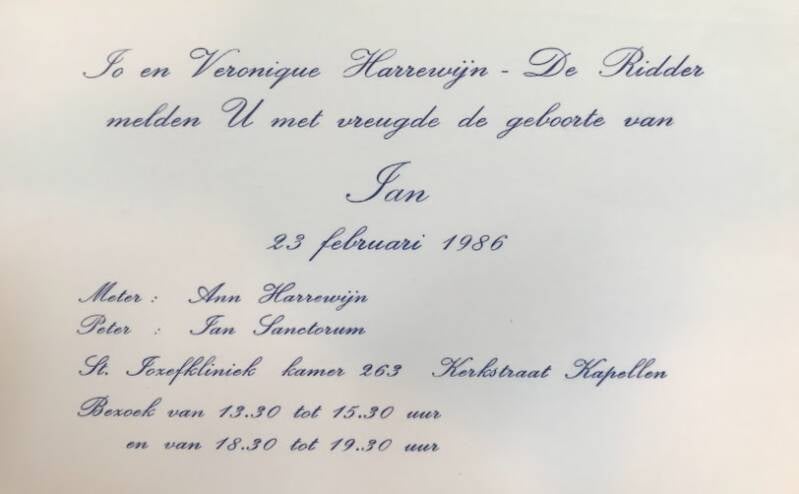 Jo en Veronique Harrewijn - De Ridder
melden U met vreugde de geboorte van
Jan
23 februari 1986
Meter : Ann Harrewijn
Peter : Jan Sanctorum
St. Jozefkliniek kamer 263 Kerkstraat Kapellen
Bezoek van 13.30 tot 15.30 uur
en van 18.30 tot 19.30 uur